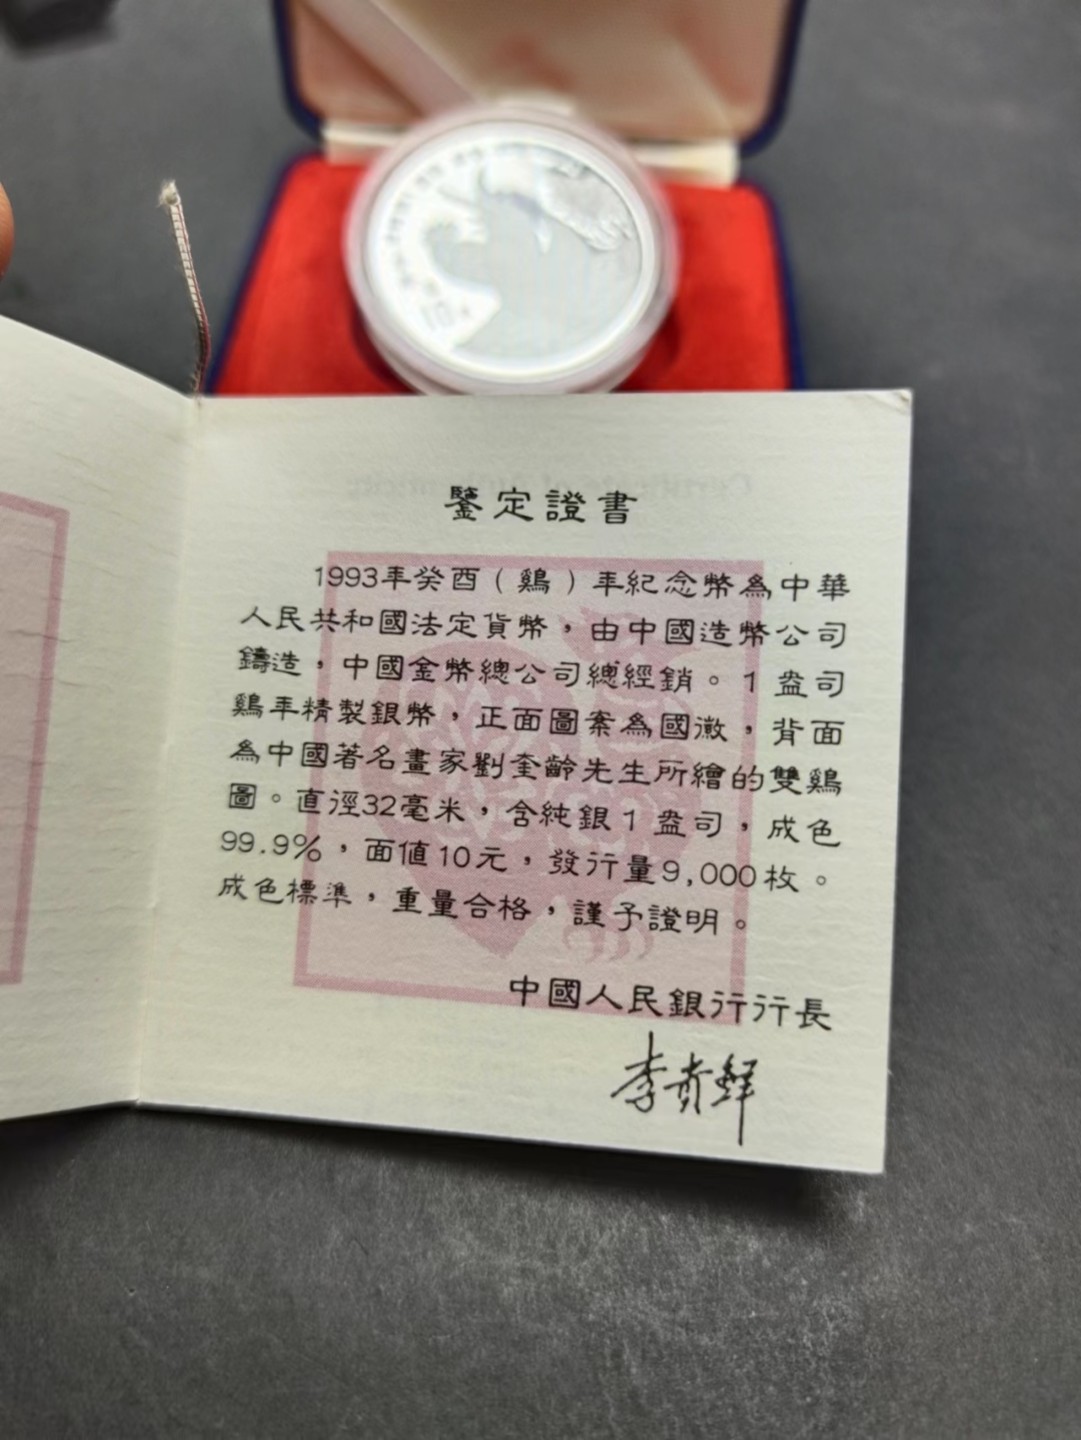 鑒定證書
1993年癸酉（鷄）年紀念幣為中華
人民共和國法定貨幣，由中國造幣公司
鑄造，中國金幣總公司總經銷。1 盎司
鷄年精製銀幣，正面圖案為國徽，背面
為中國著名畫家劉奎齡先生所繪的雙鷄
圖。直徑32毫米，含純銀1 盎司，成色
99.9%，面值10元，發行量9,000枚。
成色標準，重量合格，謹予證明。
中國人民銀行行長
李贵鲜